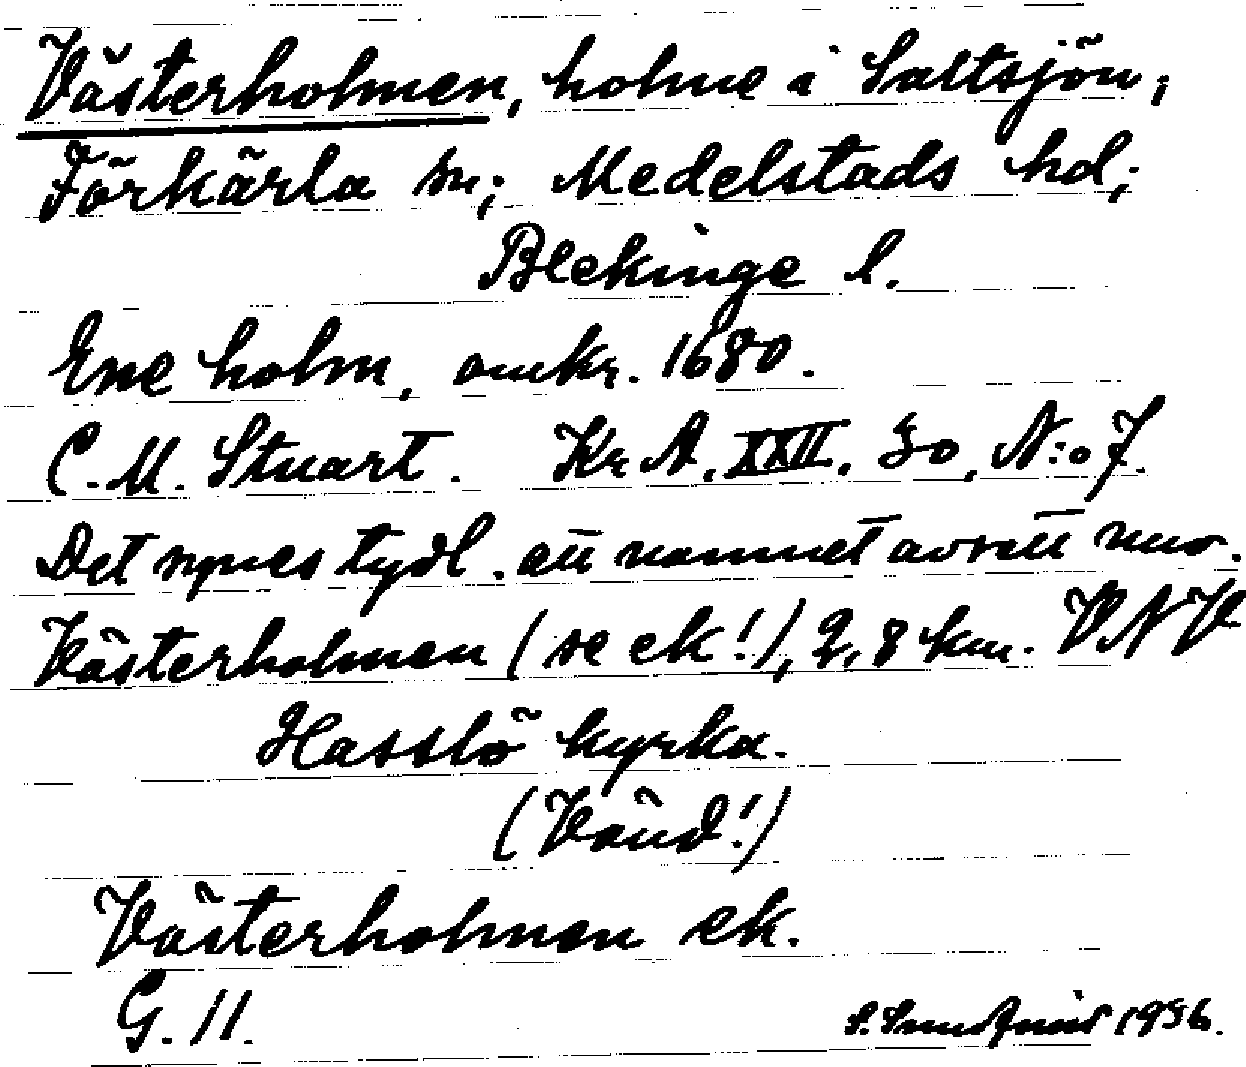 Västerholmen, holme i Saltsjön,
Förkärla sn; Medelstads hd,
Blekinge l.
Ene holm, omkr. 1680.
C.M. Stuart. Kr A. XXII. 30, N:o 7.
Det synes tydl. att namnet avsett nuv.
Västerholmen (se ek!), 2,8 km. VNV
Hasslö kyrka.
(Vänd!)
Västerholmen ek.
G. 11.
1936.